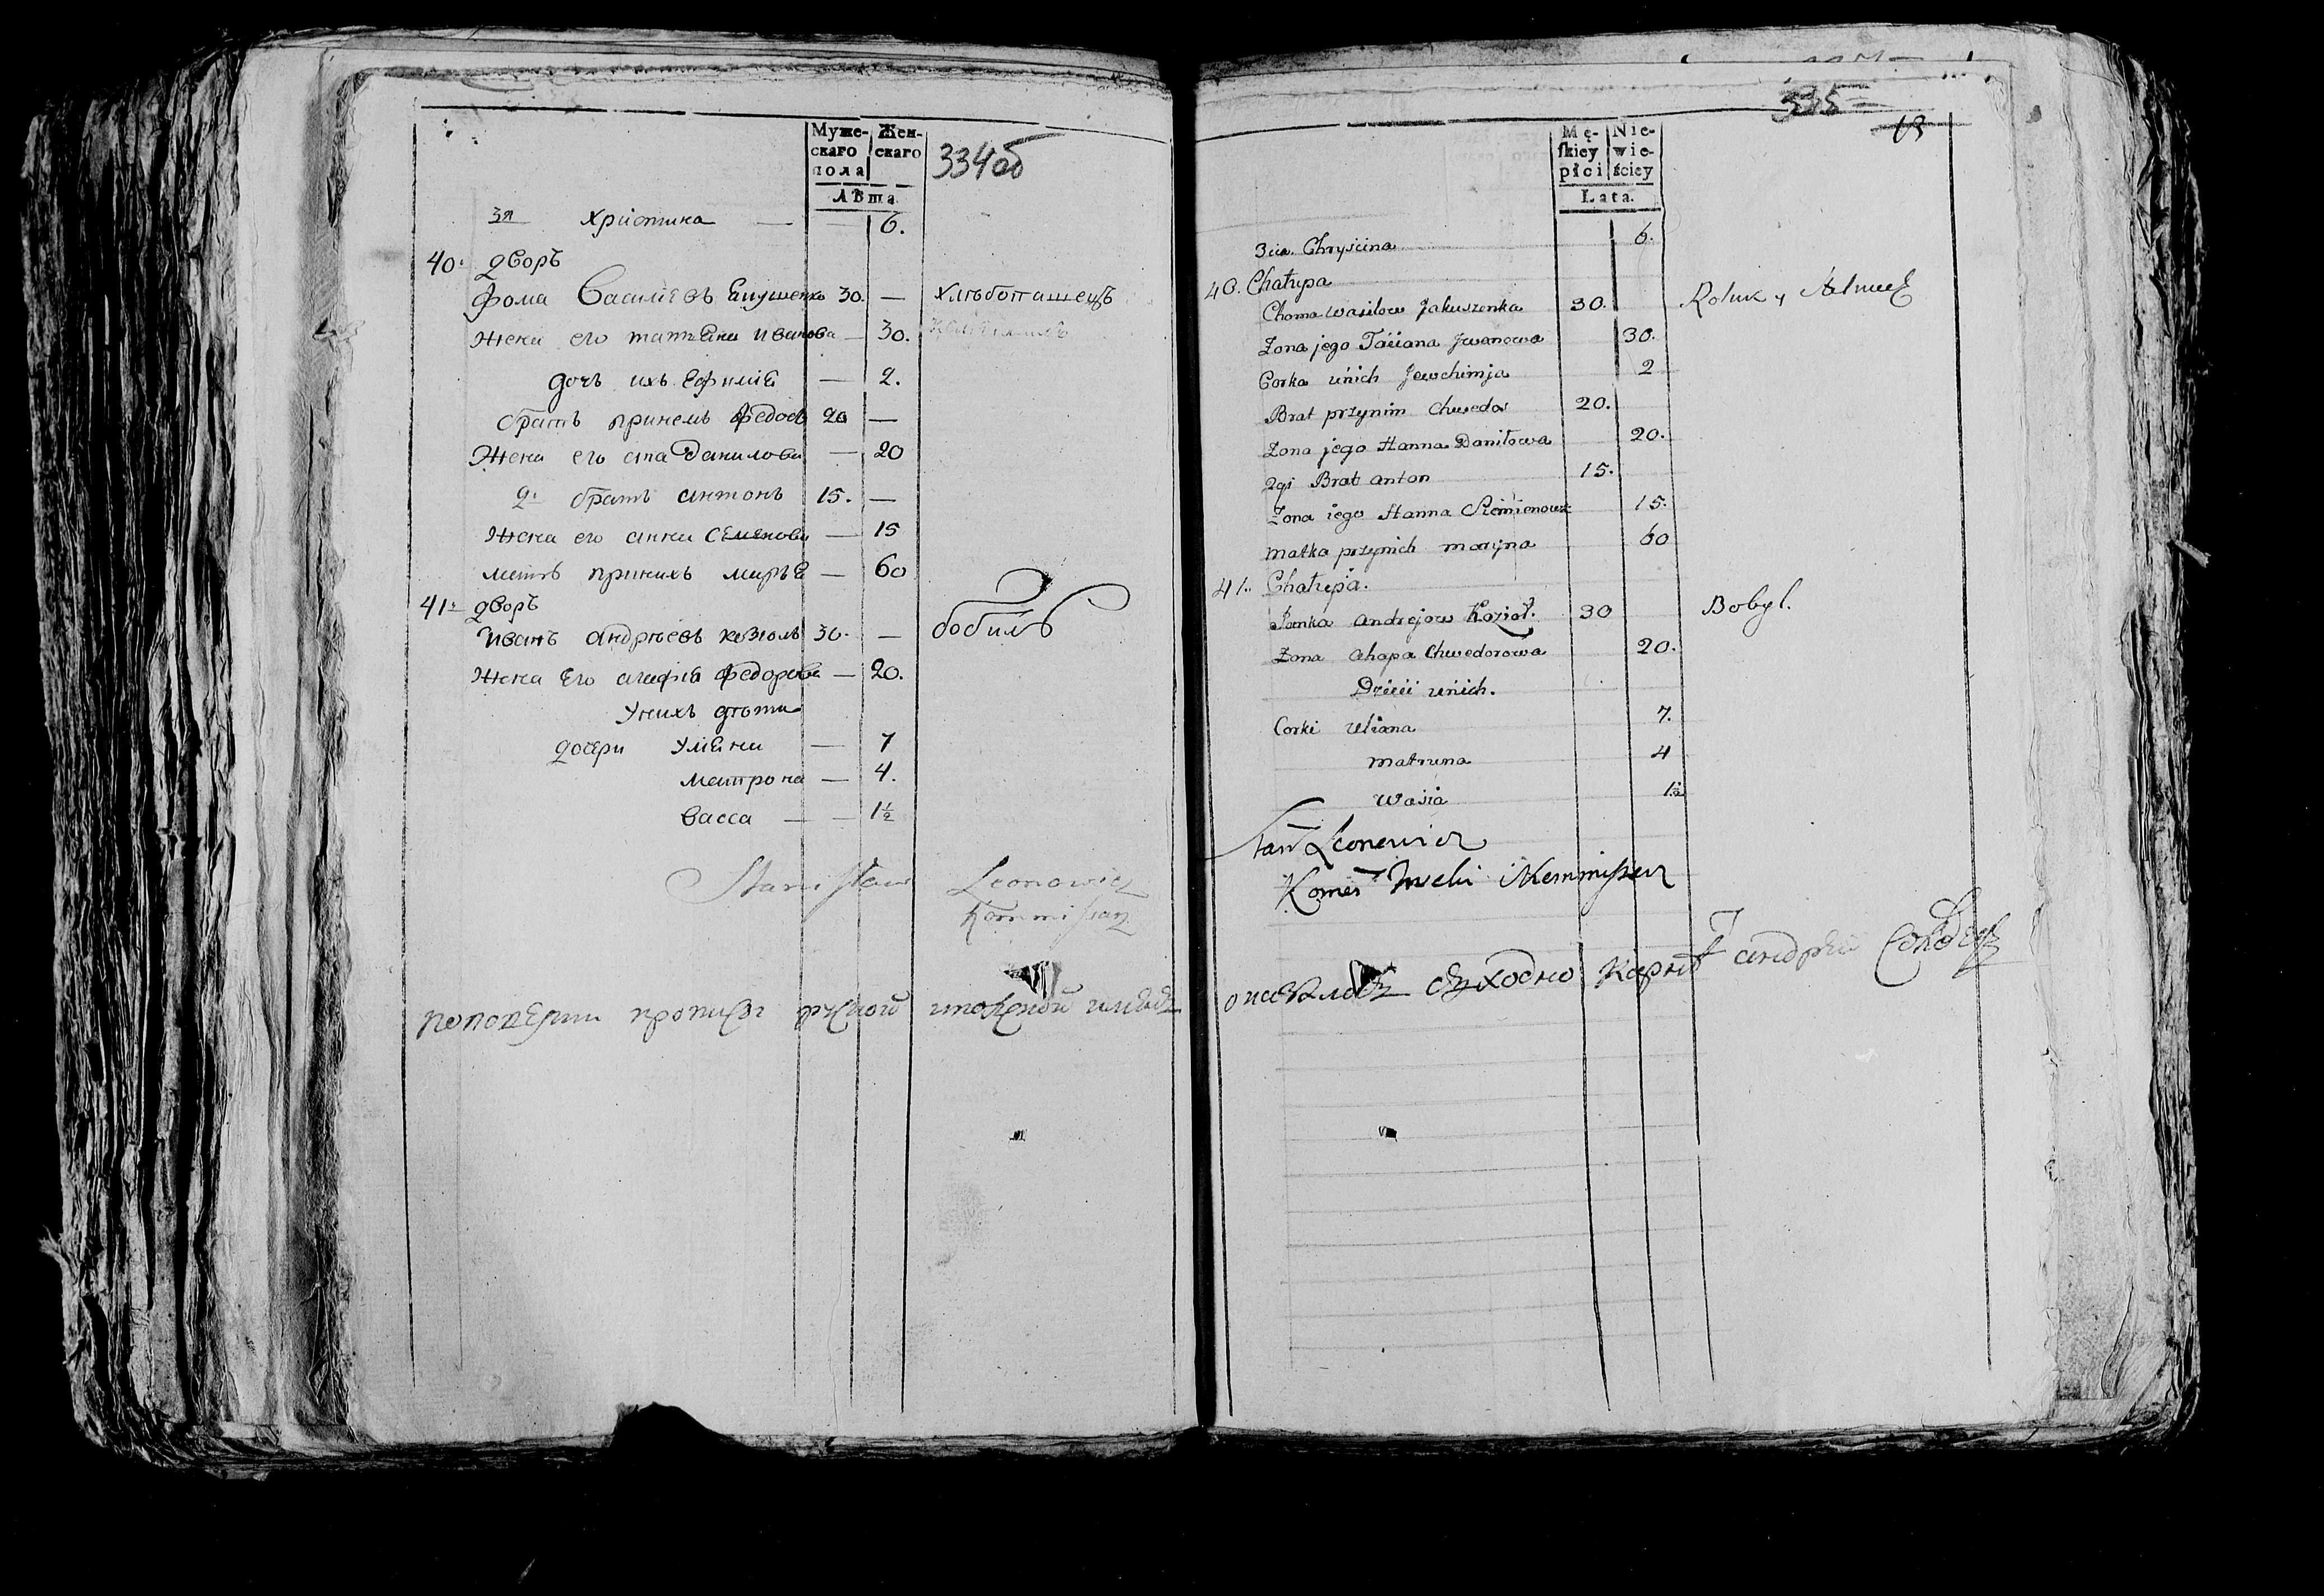 Муже-
скаго
пола
Жен-
скаго
Лѣта
334об
3я Христина — — 6.
40. дворъ
Фома Васильевъ Якушенко 30. — хлѣбопашецъ
Жена его татьяна Иванова — 30.
дочь ихъ Ефимія — 2.
братъ принемъ Федосъ 20 —
Жена его Данилова — 20
2й братъ антонъ 15. —
Жена его анна Семянова — 15
мать принихъ марья — 60
41й дворъ
Иванъ андрѣевъ козюлъ 30. — бобиль
Жена Его агафія Федорова — 20.
Унихъ дѣти
дочери Уляна — 7
матрона — 4.
васса — — 1½
Stanisław Leonowicz
Kommissarz
поповерки противъ
335
13
Mę-
skiey
płci
Nie-
wie-
ściey
Lata.
3cia Chryścina 6.
40. Chałupa
Choma Wasilow Jakuszenka 30. Rolnik y
Żona jego Taciana Jwanowa 30.
Corka unich Jewchimja 2
Brat przynim Chwedos 20.
Żona jego Hanna Daniłowa 20.
2gi Brat anton 15.
Żona iego Hanna Siemienowa 15.
matka przynich maryna 60
41. Chałupa.
Janka andrejow Kozioł. 30 Bobyl.
Żona ahapa Chwedorowa 20.
Dzieci unich.
Corki Uliana 7.
matruna 4
Wasia 1½
Stan Leonowicz
андрей